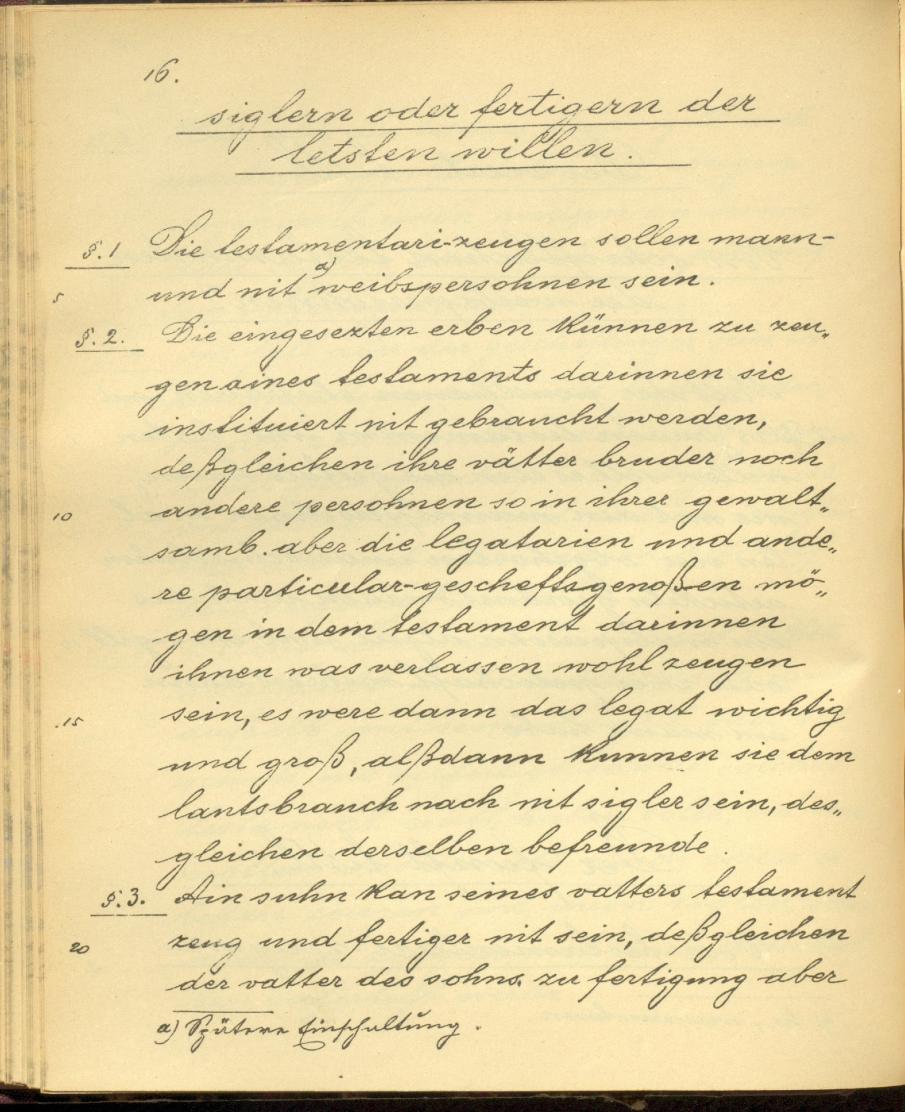 16.
siglern oder fertigern der
letsten willen.
§.1 Die testamentari-zeugen sollen mann-
5 und nit a) weibspersohnen sein.
§.2. Die eingesezten erben künnen zu zeu„
gen aines testaments darinnen sie
instituiert nit gebraucht werden,
deßgleichen ihre vätter bruder noch
10 andere persohnen so in ihrer gewalt„
samb. aber die legatarien und ande„
re particular-gescheftsgenoßen mö„
gen in dem testament darinnen
ihnen was verlassen wohl zeugen
15 sein, es were dann das legat wichtig
und groß, alßdann kunnen sie dem
lantsbrauch nach nit sigler sein, des„
gleichen derselben befreunde.
§.3. Ain suhn kan seines vatters testament
20 zeug und fertiger nit sein, deßgleichen
der vatter des sohns. zu fertigung aber
a) Spätere Einschaltung.